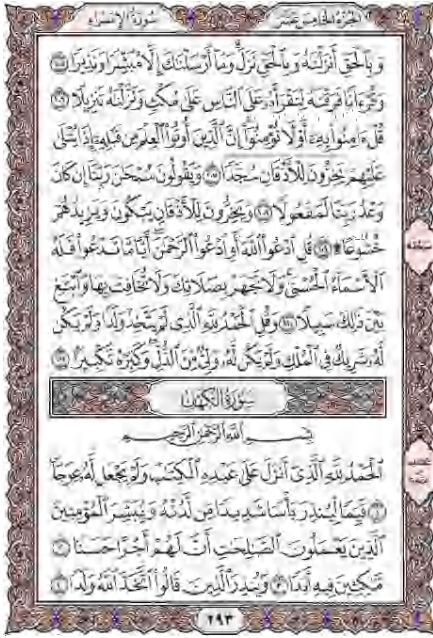 الجزء الخامس عشر سورة الإسراء
وَبِالْحَقِّ أَنزَلْنَٰهُ وَبِالْحَقِّ نَزَلَ وَمَآ أَرْسَلْنَٰكَ إِلَّا مُبَشِّرًا وَنَذِيرًا ١٠٥
وَقُرْءَانًا فَرَقْنَٰهُ لِتَقْرَأَهُۥ عَلَى النَّاسِ عَلَىٰ مُكْثٍ وَنَزَّلْنَٰهُ تَنزِيلًا ١٠٦
قُلْ ءَامِنُوا۟ بِهِۦٓ أَوْ لَا تُؤْمِنُوٓا۟ إِنَّ الَّذِينَ أُوتُوا۟ الْعِلْمَ مِن قَبْلِهِۦٓ إِذَا يُتْلَىٰ
عَلَيْهِمْ يَخِرُّونَ لِلْأَذْقَانِ سُجَّدًا ١٠٧ وَيَقُولُونَ سُبْحَٰنَ رَبِّنَآ إِن كَانَ
وَعْدُ رَبِّنَا لَمَفْعُولًا ١٠٨ وَيَخِرُّونَ لِلْأَذْقَانِ يَبْكُونَ وَيَزِيدُهُمْ
خُشُوعًا ۩ ١٠٩ قُلِ ادْعُوا۟ اللَّهَ أَوِ ادْعُوا۟ الرَّحْمَٰنَ أَيًّا مَّا تَدْعُوا۟ فَلَهُ
الْأَسْمَآءُ الْحُسْنَىٰ وَلَا تَجْهَرْ بِصَلَاتِكَ وَلَا تُخَافِتْ بِهَا وَابْتَغِ
بَيْنَ ذَٰلِكَ سَبِيلًا ١١٠ وَقُلِ الْحَمْدُ لِلَّهِ الَّذِى لَمْ يَتَّخِذْ وَلَدًا وَلَمْ يَكُن
لَّهُۥ شَرِيكٌ فِى الْمُلْكِ وَلَمْ يَكُن لَّهُۥ وَلِىٌّ مِّنَ الذُّلِّ وَكَبِّرْهُ تَكْبِيرًا ١١١
سورة الكهف
بسم الله الرحمن الرحيم
الْحَمْدُ لِلَّهِ الَّذِىٓ أَنزَلَ عَلَىٰ عَبْدِهِ الْكِتَٰبَ وَلَمْ يَجْعَل لَّهُۥ عِوَجَا
١ قَيِّمًا لِّيُنذِرَ بَأْسًا شَدِيدًا مِّن لَّدُنْهُ وَيُبَشِّرَ الْمُؤْمِنِينَ
الَّذِينَ يَعْمَلُونَ الصَّٰلِحَٰتِ أَنَّ لَهُمْ أَجْرًا حَسَنًا ٢
مَّٰكِثِينَ فِيهِ أَبَدًا ٣ وَيُنذِرَ الَّذِينَ قَالُوا۟ اتَّخَذَ اللَّهُ وَلَدًا ٤
٢٩٣